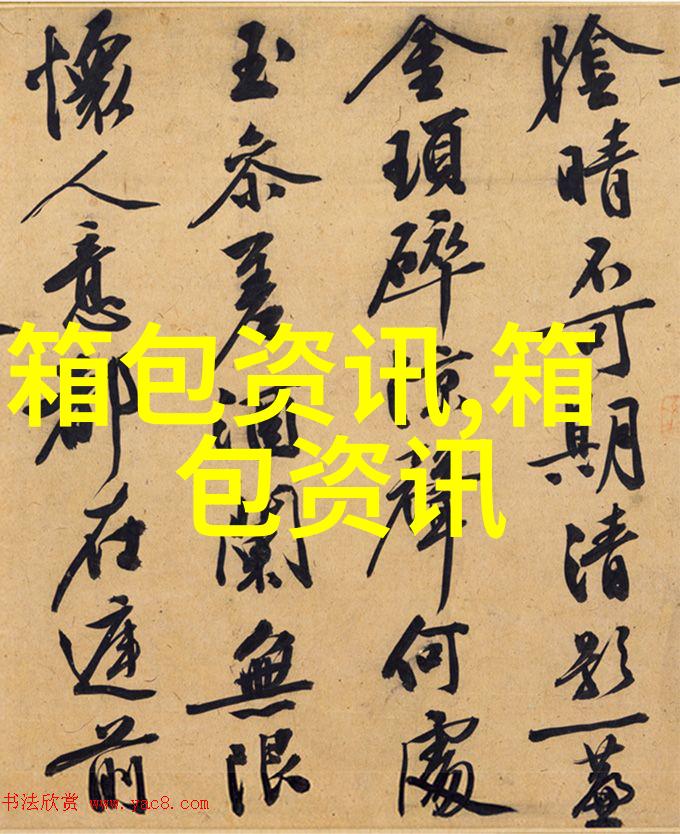 陰晴不可期清影一簾
金瑣碎涼聲何處
玉參差酒闌無限
懷人意都在庭前
箱包资讯,箱
包资讯
书法欣赏 www.yac8.com